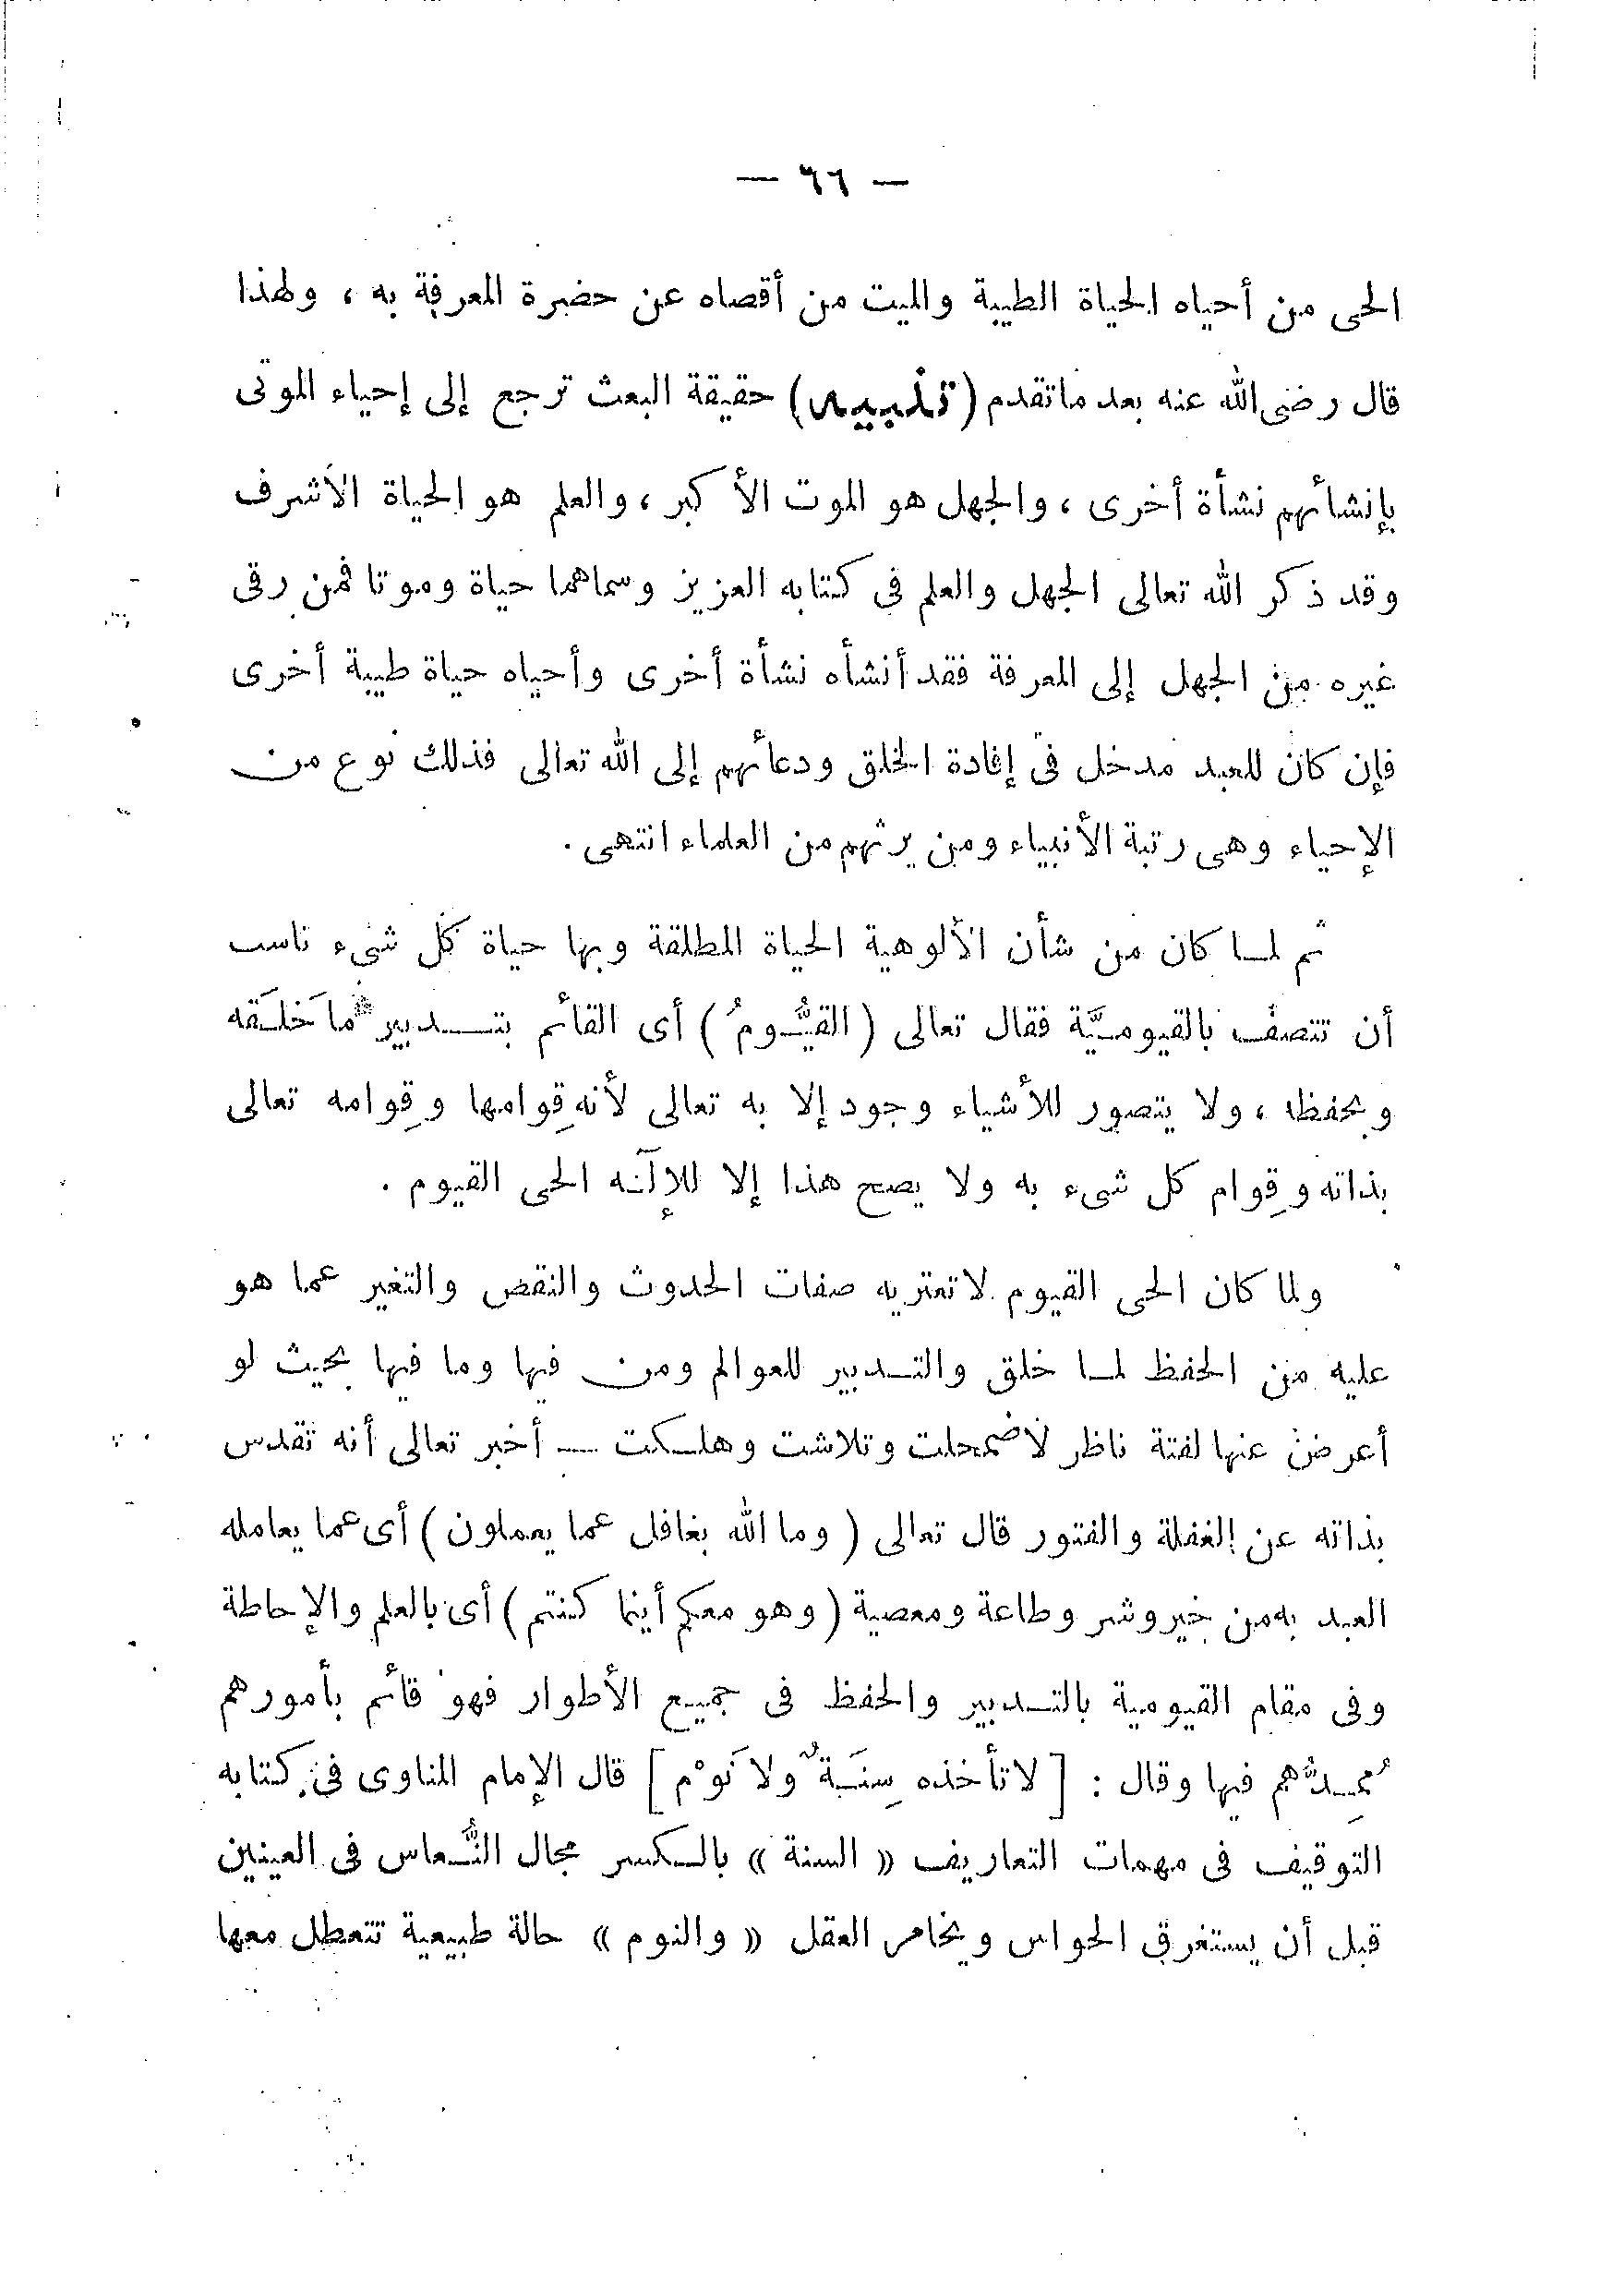 — ٦٦ —
الحى من أحياه الحياة الطيبة والميت من أقصاه عن حضرة المعرفة به ، ولهذا
قال رضى الله عنه بعد ماتقدم (تنبيه) حقيقة البعث ترجع إلى إحياء الموتى
بإنشائهم نشأة أخرى ، والجهل هو الموت الأكبر ، والعلم هو الحياة الأشرف
وقد ذكر الله تعالى الجهل والعلم فى كتابه العزيز وسماهما حياة وموتا فمن رقى
غيره من الجهل إلى المعرفة فقد أنشأه نشأة أخرى وأحياه حياة طيبة أخرى
فإن كان للعبد مدخل فى إفادة الخلق ودعائهم إلى الله تعالى فذلك نوع من
الإحياء وهى رتبة الأنبياء ومن يرثهم من العلماء انتهى .
ثم لما كان من شأن الألوهية الحياة المطلقة وبها حياة كل شىء ناسب
أن تتصف بالقيوميَّة فقال تعالى ( القيُّومُ ) أى القائم بتدبير ما خَلَقَه
وبحفظه ، ولا يتصور للأشياء وجود إلا به تعالى لأنه قِوامها وقِوامه تعالى
بذاته وقِوام كل شىء به ولا يصح هذا إلا للإلَٓه الحى القيوم .
ولما كان الحى القيوم لا تعتريه صفات الحدوث والنقض والتغير عما هو
عليه من الحفظ لما خلق والتدبير للعوالم ومن فيها وما فيها بحيث لو
أعرض عنها لفتة ناظر لاضمحلت وتلاشت وهلكت — أخبر تعالى أنه تقدس
بذاته عن الغفلة والفتور قال تعالى ( وما الله بغافل عما يعملون ) أى عما يعامله
العبد به من خير وشر وطاعة ومعصية ( وهو معكم أينما كنتم ) أى بالعلم والإحاطة
وفى مقام القيومية بالتدبير والحفظ فى جميع الأطوار فهو قائم بأمورهم
مُمِدُّهم فيها وقال : [ لا تأخذه سِنَةٌ ولا نَوْم ] قال الإمام المناوى فى كتابه
التوقيف فى مهمات التعاريف « السنة » بالكسر مجال النُّعاس فى العينين
قبل أن يستغرق الحواس ويخامر العقل « والنوم » حالة طبيعية تتعطل معها